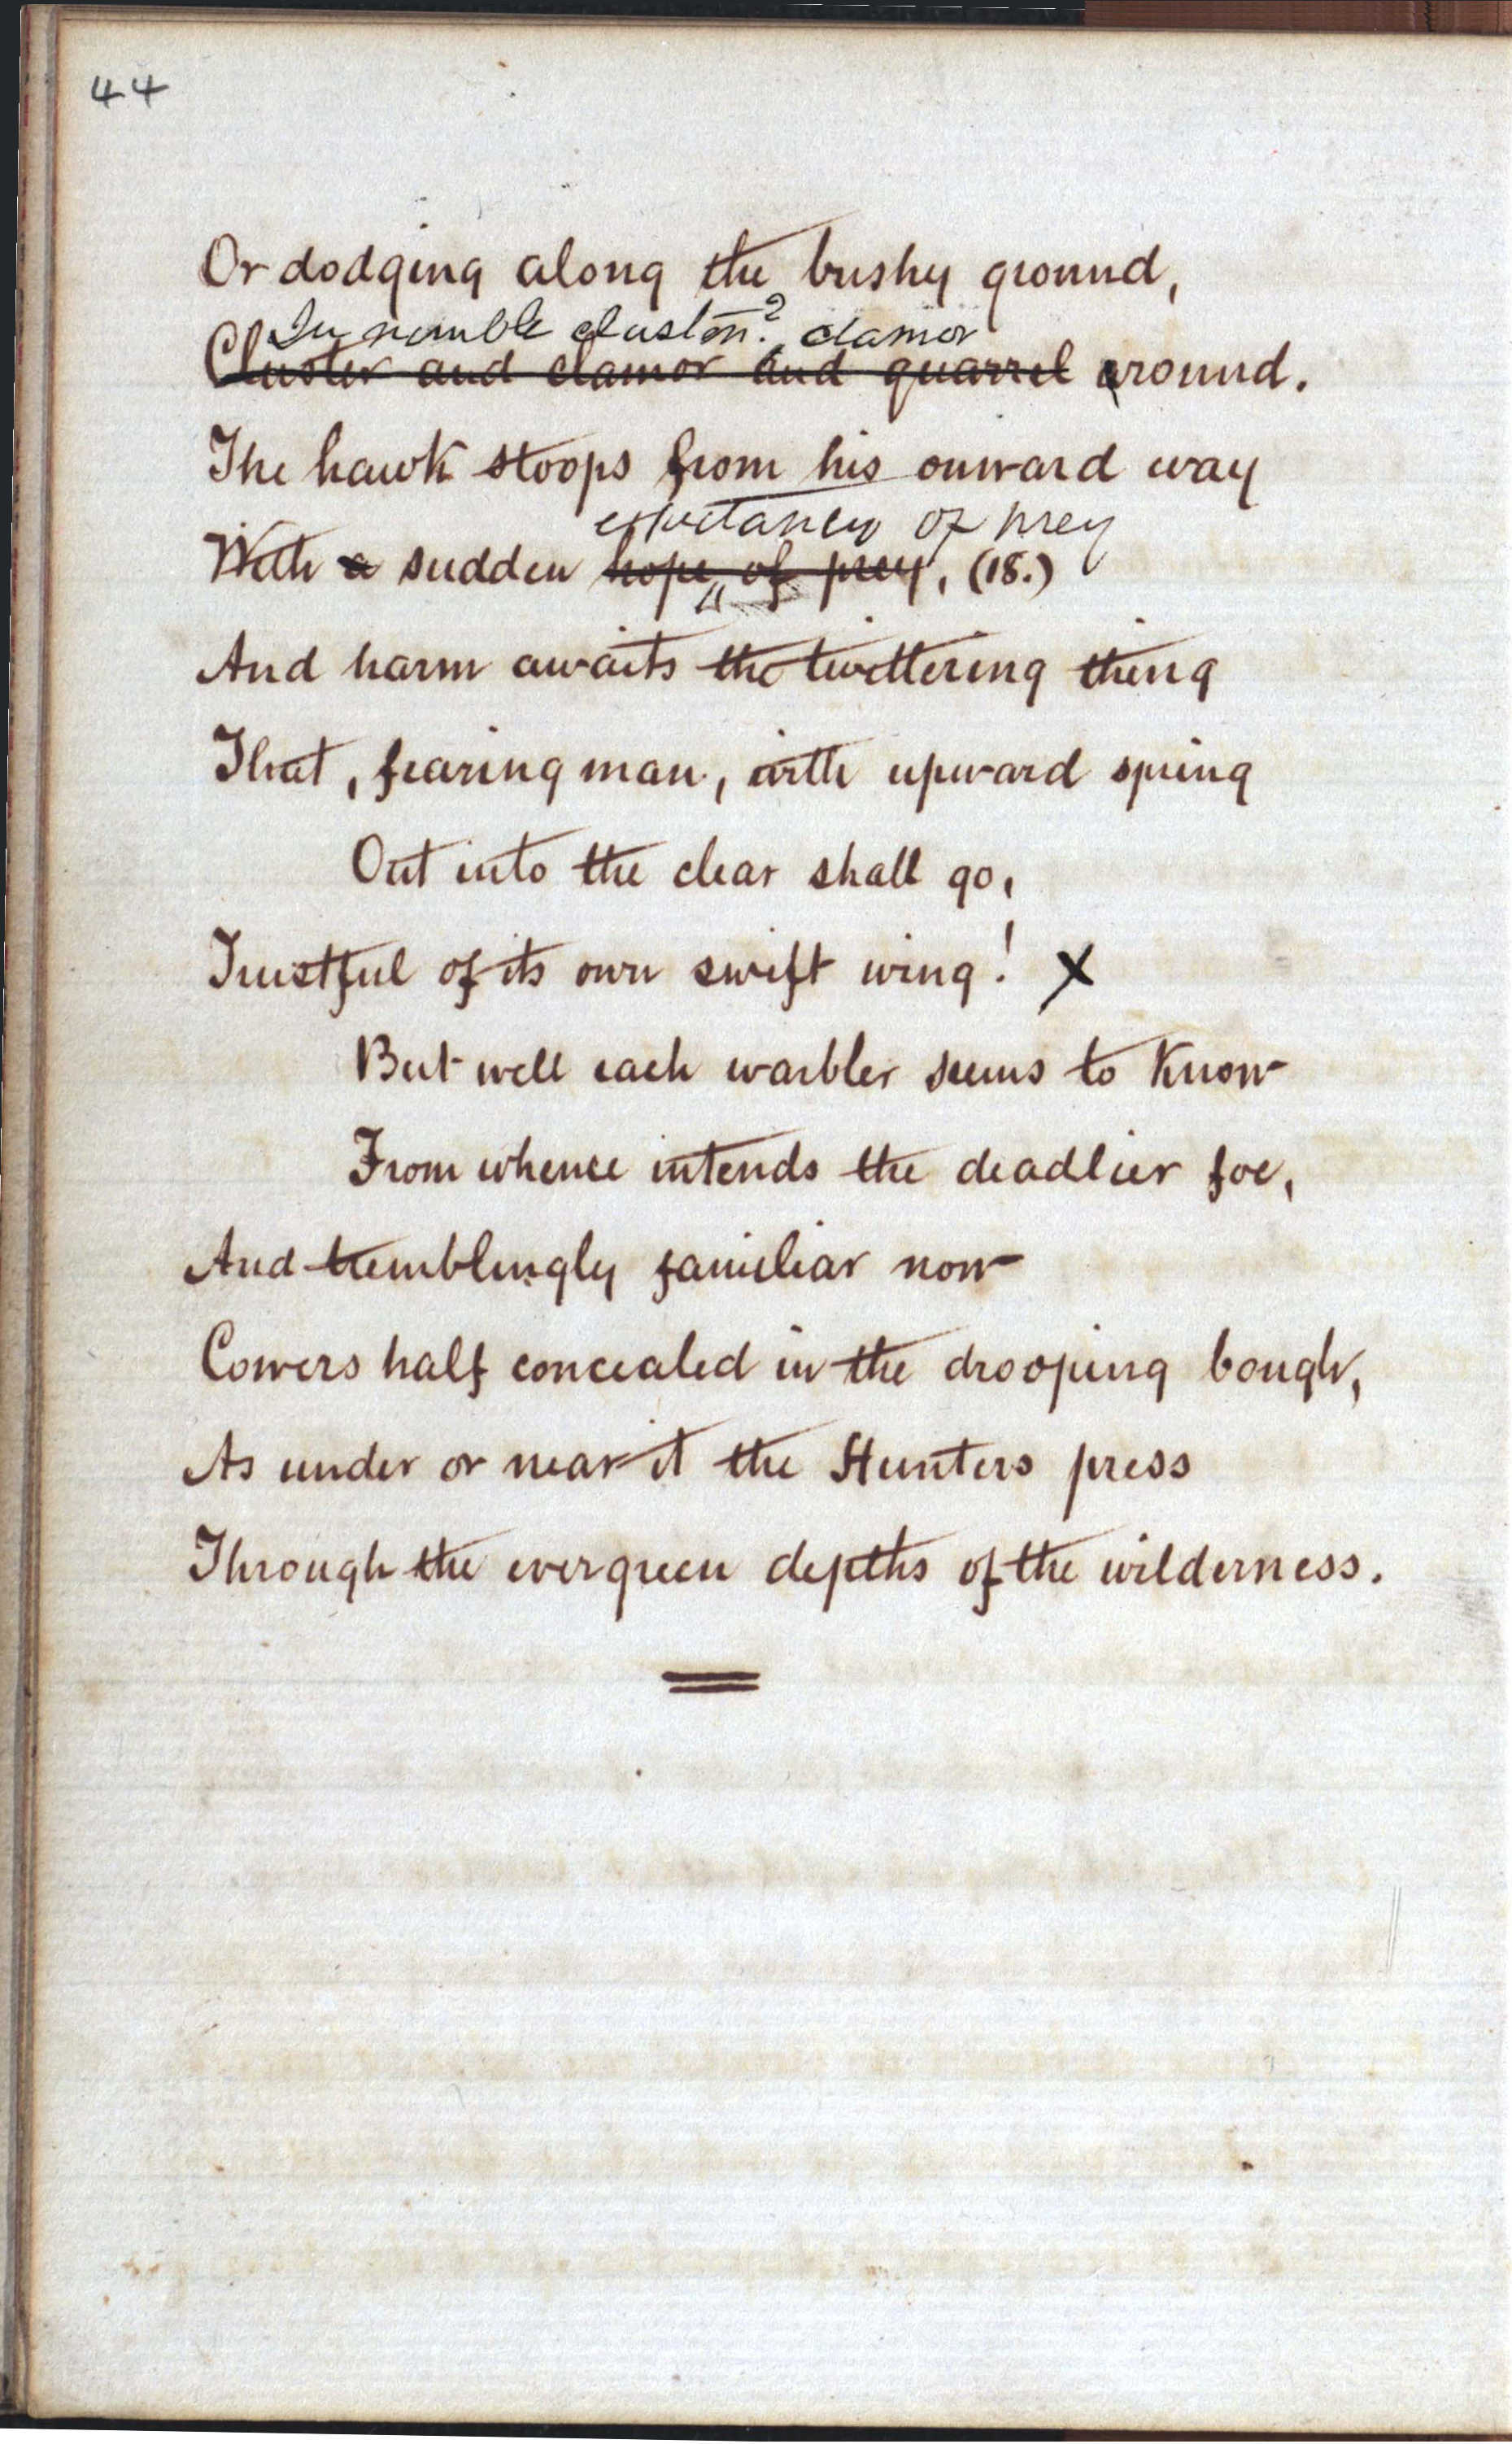 44
Or dodging along the bushy ground,
In nimble cluster? clamor
Cluster and clamor and quarrel around.
The hawk stoops from his onward way
expectancy of prey
With a sudden hope of prey, (18.)
And harm awaits the twittering thing
That, fearing man, with upward spring
Out into the clear shall go,
Trustful of its own swift wing! X
But well each warbler seems to know
From whence intends the deadlier foe,
And tremblingly familiar now
Cowers half concealed in the drooping bough,
As under or near it the Hunters press
Through the evergreen depths of the wilderness.